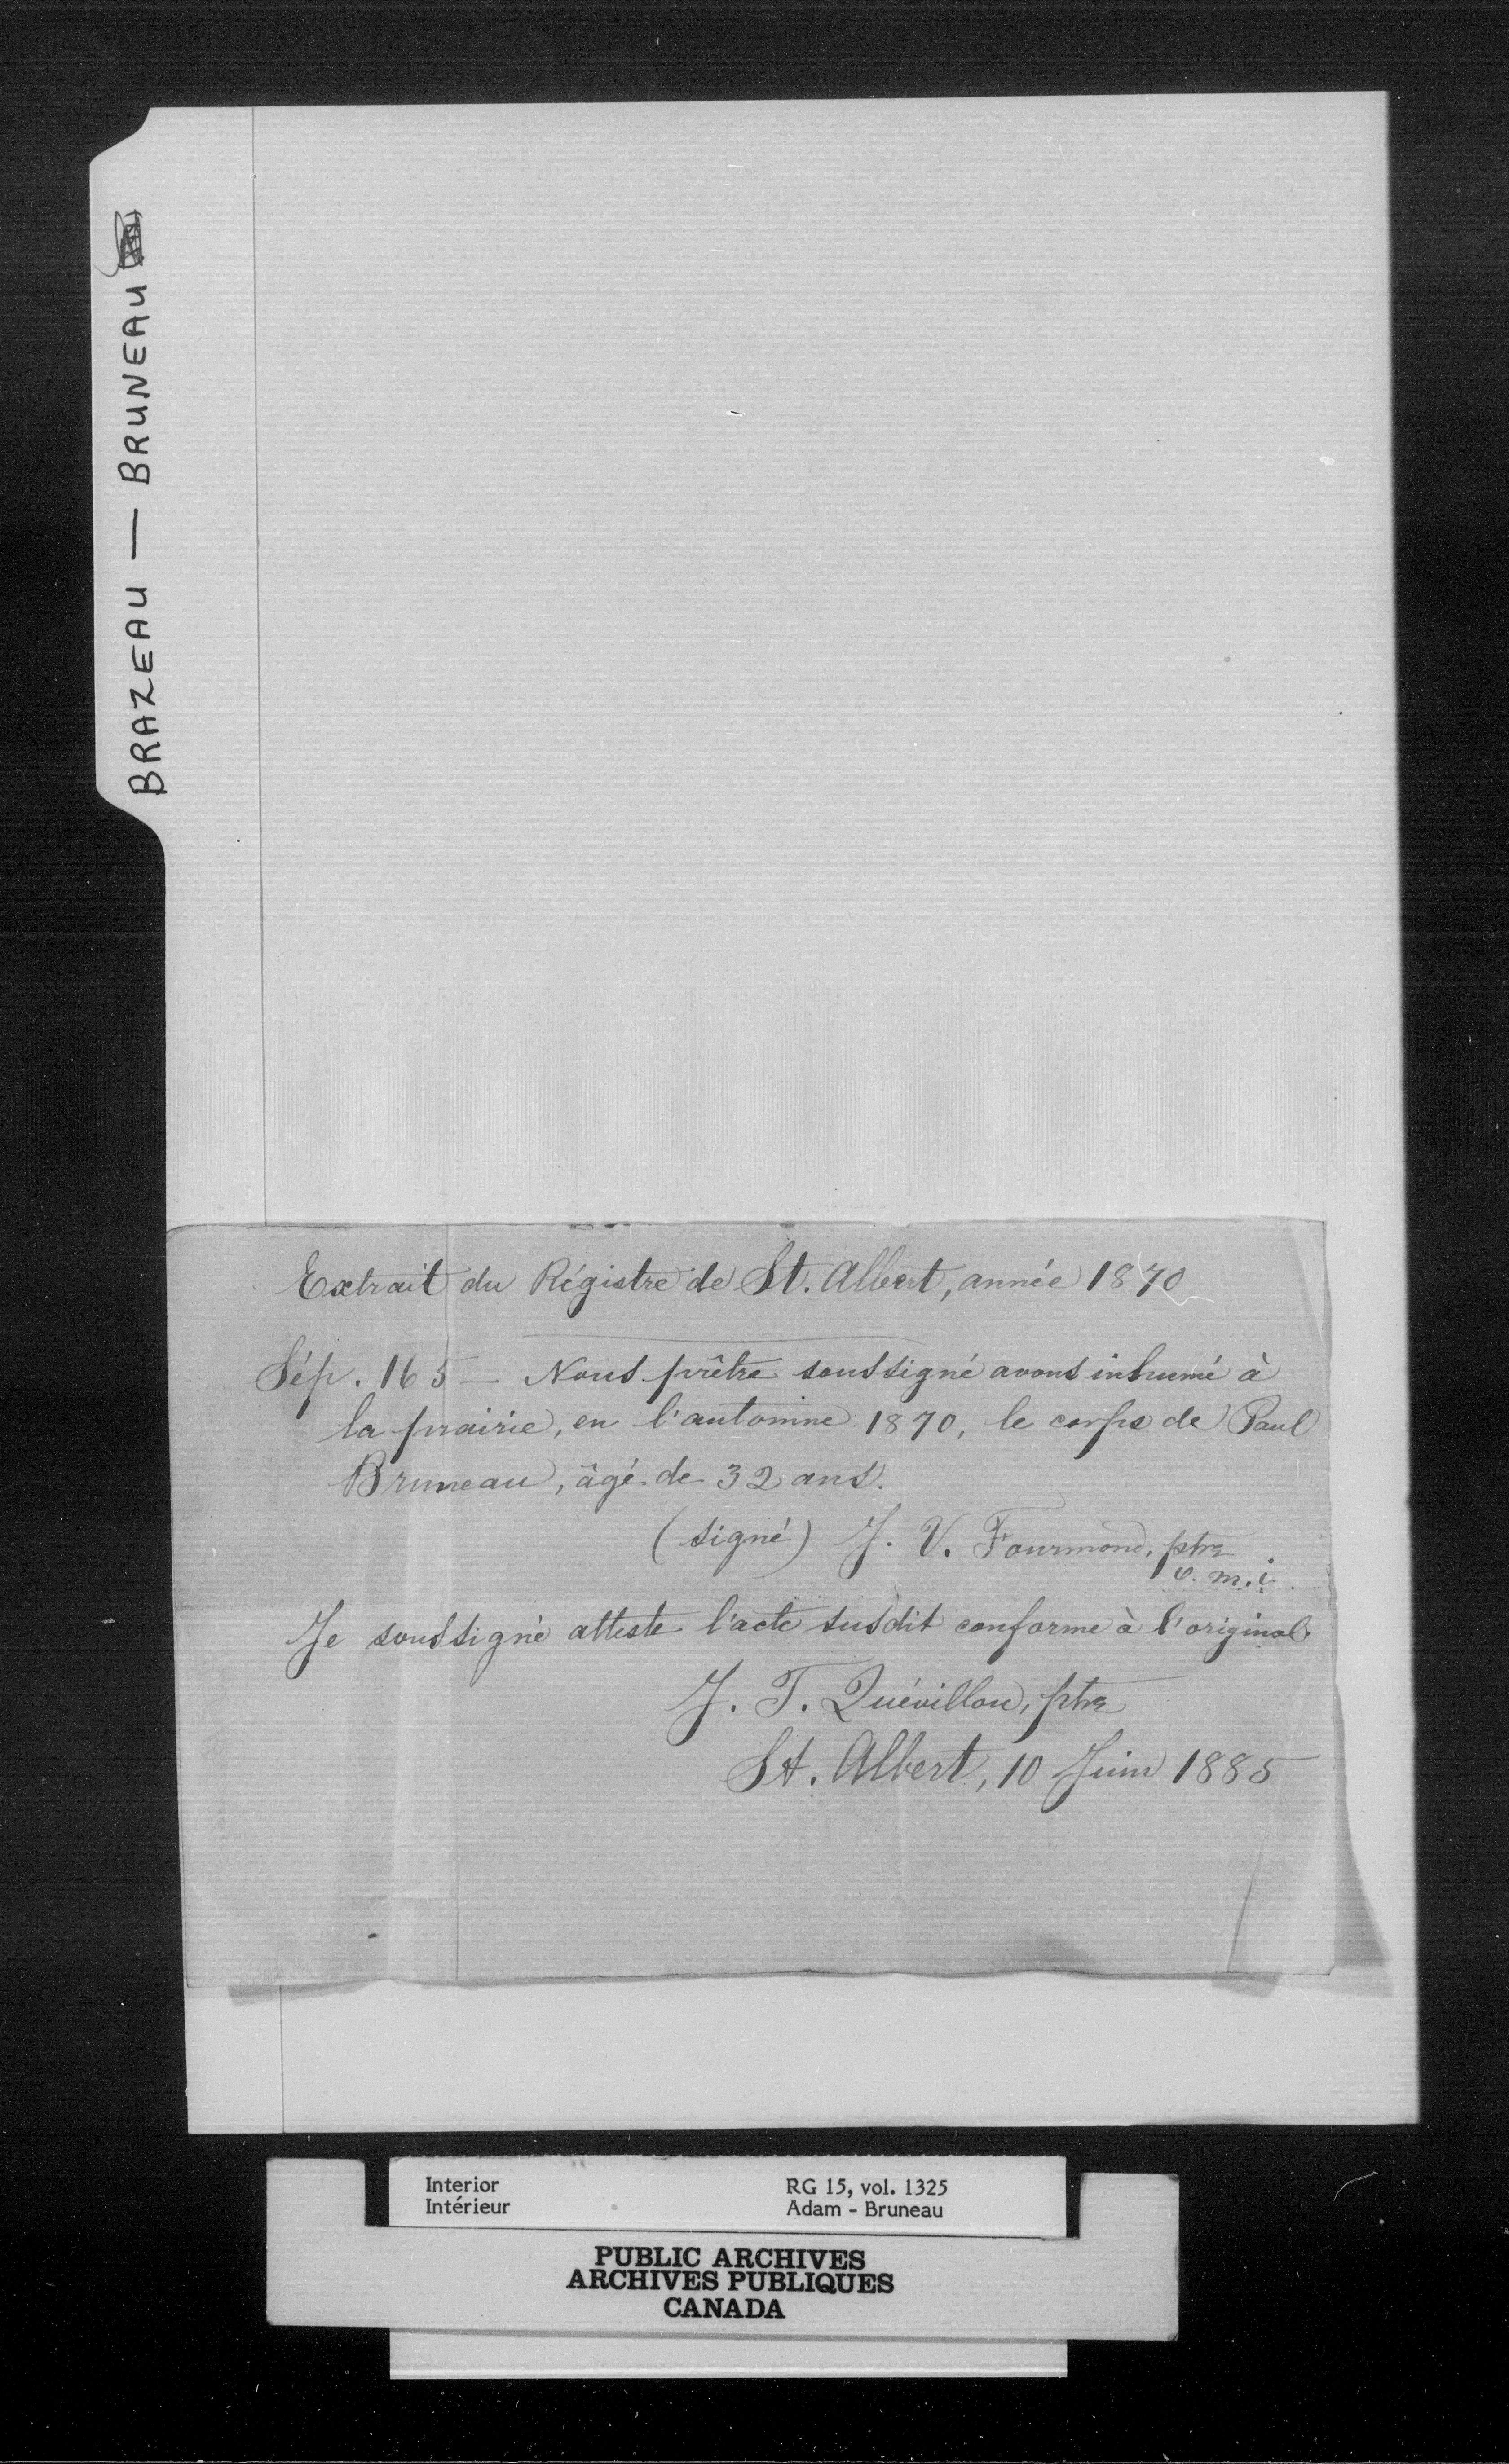 BRAZEAU — BRUNEAU
Extrait du Régistre de St. Albert, année 1870
Sép. 165 — Nous prêtre soussigné avons inhumé à
la prairie, en l'automne 1870, le corps de Paul
Bruneau, âgé de 32 ans.
(signé) J. V. Fourmond, ptre
o. m. i.
Je soussigné atteste l'acte susdit conforme à l'original.
J. T. Quévillon, ptre
St. Albert, 10 Juin 1885
Interior
Intérieur
RG 15, vol. 1325
Adam - Bruneau
PUBLIC ARCHIVES
ARCHIVES PUBLIQUES
CANADA